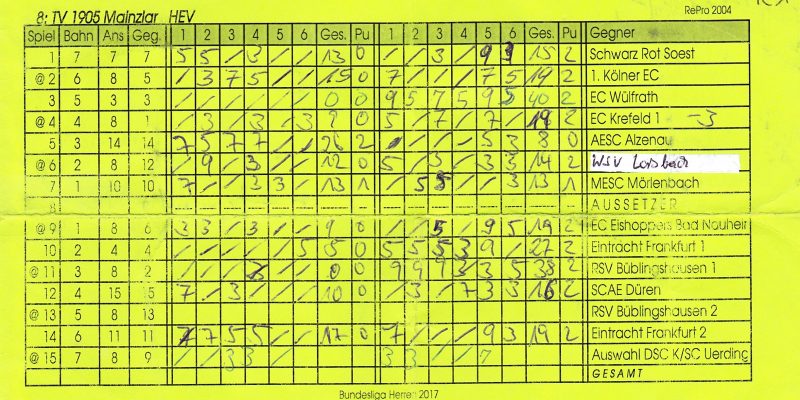 8: TV 1905 Mainzlar HEV
RePro 2004
Spiel Bahn Ans Geg. 1 2 3 4 5 6 Ges. Pu 1 2 3 4 5 6 Ges. Pu Gegner
1 7 7 7 5 5 / 3 / / 13 0 / / 3 / 9 3 15 2 Schwarz Rot Soest
@ 2 6 8 5 / 3 7 5 / / 15 0 7 / / / 7 5 19 2 1. Kölner EC
3 5 3 3 / / / / / / 0 0 9 5 7 5 9 5 40 2 EC Wülfrath
@ 4 4 8 1 / 3 / 3 / 3 9 0 5 / 7 / 7 / 19 2 EC Krefeld 1 -3
5 3 14 14 7 5 7 7 / / 26 2 / / / / 5 3 8 0 AESC Alzenau
@ 6 2 8 12 / 9 / 3 / / 12 0 5 / 3 / 3 3 14 2 WSV Lorsbach
7 1 10 10 7 / / 3 3 / 13 1 / 5 5 / / 3 13 1 MESC Mörlenbach
8 AUSSETZER
@ 9 1 8 6 3 3 / 3 / / 9 0 / / 5 / 9 5 19 2 EC Eishoppers Bad Nauheim
10 2 4 4 / / / / / 5 5 0 5 5 5 3 9 / 27 2 Eintracht Frankfurt 1
@ 11 3 8 2 / / / / / / 0 0 9 9 9 3 3 5 38 2 RSV Büblingshausen 1
12 4 15 15 7 / 3 / / / 10 0 / 3 / 7 3 3 16 2 SCAE Düren
@ 13 5 8 13 RSV Büblingshausen 2
14 6 11 11 7 7 5 5 / / 17 0 7 / / / 9 3 19 2 Eintracht Frankfurt 2
@ 15 7 8 9 / / 3 3 / 3 3 / / 7 Auswahl DSC K/SC Uerding
GESAMT
Bundesliga Herren 2017